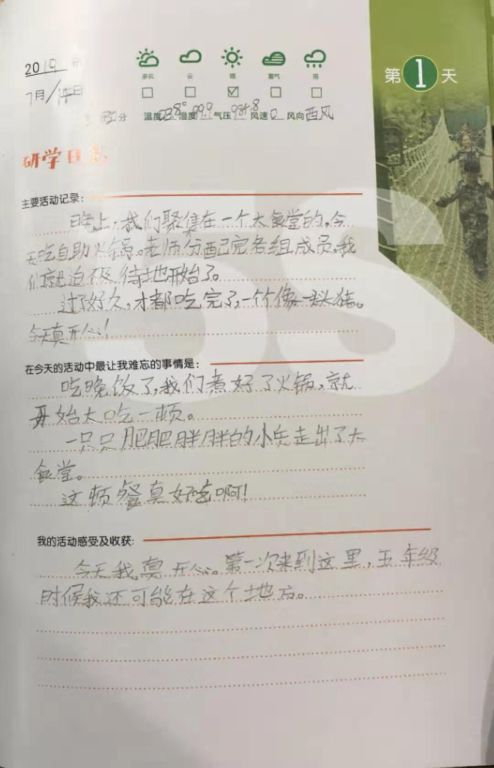 2019年
7月/15日
多云 云 晴 雾气 雨
温度23.8° 湿度99.9 气压934.8 风速0 风向西风
第1天
研学日志
主要活动记录:
晚上,我们聚集在一个大食堂的,今
天吃自助火锅。老师分配完各组成员,我
们就迫不及待地开始了。
过了好久,才都吃完了,一个个像一头猪。
今天真开心!
在今天的活动中最让我难忘的事情是:
吃晚饭了,我们煮好了火锅,就
开始大吃一顿。
一只只肥肥胖胖的小兵走出了大
食堂。
这顿餐真好吃啊!
我的活动感受及收获:
今天我真开心。第一次来到这里,五年级
时候我还可能在这个地方。